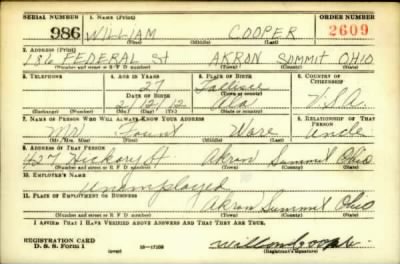 SERIAL NUMBER 1. NAME (Print) ORDER NUMBER
986 WILLIAM COOPER 2609
(First) (Middle) (Last)
2. ADDRESS (Print)
136 FEDERAL St AKRON SUMMIT OHIO
(Number and street or R. F. D. number) (Town) (County) (State)
3. TELEPHONE 4. AGE IN YEARS 5. PLACE OF BIRTH 6. COUNTRY OF CITIZENSHIP
27
DATE OF BIRTH (Town or county)
2/12/12 Ala U.S.A.
(Exchange) (Number) (Mo.) (Day) (Yr.) (State or country)
7. NAME OF PERSON WHO WILL ALWAYS KNOW YOUR ADDRESS 8. RELATIONSHIP OF THAT PERSON
Mr Ware Uncle
(Mr., Mrs., Miss) (First) (Middle) (Last)
9. ADDRESS OF THAT PERSON
427 Hickory St Akron Summit Ohio
(Number and street or R. F. D. number) (Town) (County) (State)
10. EMPLOYER'S NAME
Unemployed
11. PLACE OF EMPLOYMENT OR BUSINESS
Akron Summit Ohio
(Number and street or R. F. D. number) (Town) (County) (State)
I AFFIRM THAT I HAVE VERIFIED ABOVE ANSWERS AND THAT THEY ARE TRUE.
REGISTRATION CARD
D. S. S. Form 1 (over) 16-17105 (Registrant's signature)